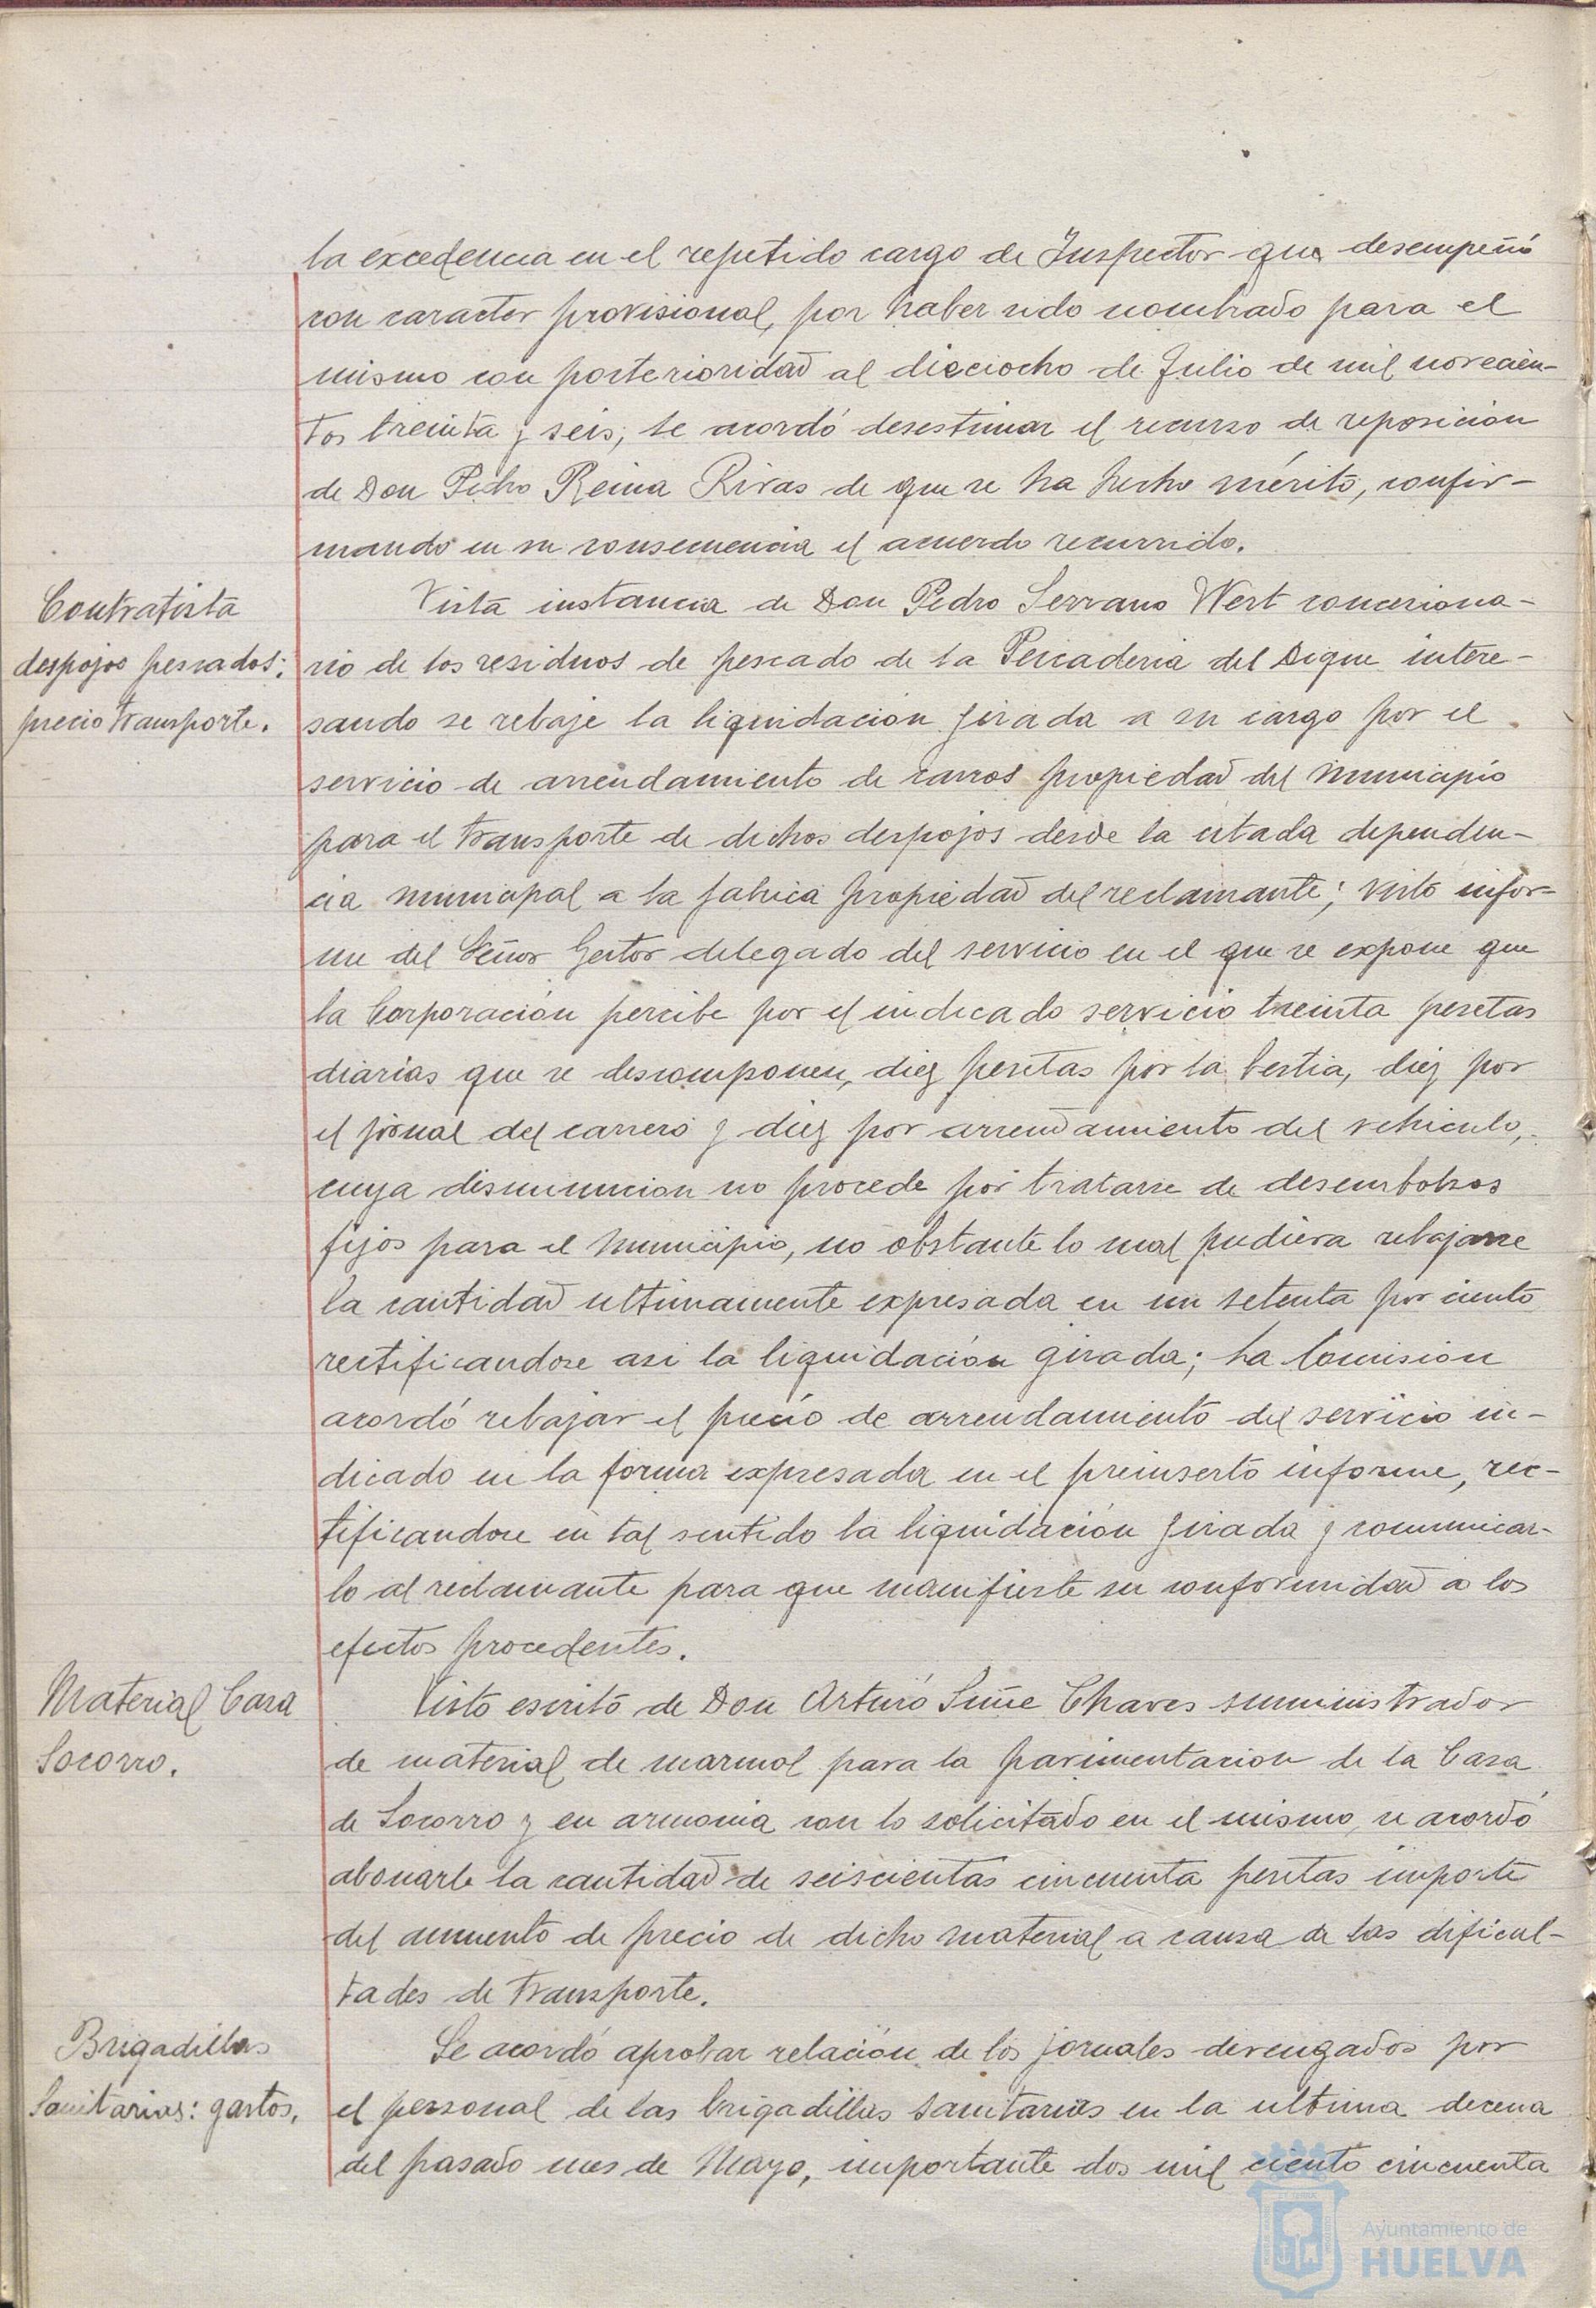 la excedencia en el repetido cargo de Inspector que desempeñó
con caracter provisional, por haber sido nombrado para el
mismo con posterioridad al dieciocho de Julio de mil novecien-
tos treinta y seis, se acordó desestimar el recurso de reposición
de Don Pedro Reina Rivas de que se ha hecho mérito, confir-
mando en su consecuencia el acuerdo recurrido.
Contratista
despojos pescados:
precio transporte.
Vista instancia de Don Pedro Serrano Wert concesiona-
rio de los residuos de pescado de la Pescaderia del Dique intere-
sando se rebaje la liquidación girada a su cargo por el
servicio de arrendamiento de carros propiedad del Municipio
para el transporte de dichos despojos desde la citada dependen-
cia municipal a la fabrica propiedad del reclamante; visto infor-
me del Señor Gestor delegado del servicio en el que se expone que
la Corporación percibe por el indicado servicio treinta pesetas
diarias que se descomponen, diez pesetas por la bestia, diez por
el jornal del carrero y diez por arrendamiento del vehiculo,
cuya disminucion no procede por tratarse de desembolsos
fijos para el Municipio, no obstante lo cual pudiera rebajarse
la cantidad ultimamente expresada en un setenta por ciento
rectificandose asi la liquidación girada; La Comision
acordó rebajar el precio de arrendamiento del servicio in-
dicado en la forma expresada en el preinserto informe, rec-
tificandose en tal sentido la liquidación girada y comunicar-
lo al reclamante para que manifieste su conformidad a los
efectos procedentes.
Material Casa
Socorro.
Visto escrito de Don Arturo Suñe Chaves suministrador
de material de marmol para la pavimentacion de la Casa
de Socorro y en armonia con lo solicitado en el mismo, se acordó
abonarle la cantidad de seiscientas cincuenta pesetas importe
del aumento de precio de dicho material a causa de las dificul-
tades de transporte.
Brigadillas
Sanitarias: gastos.
Se acordó aprobar relación de los jornales devengados por
el personal de las brigadillas sanitarias en la ultima decena
del pasado mes de Mayo, importante dos mil ciento cincuenta
Ayuntamiento de
HUELVA